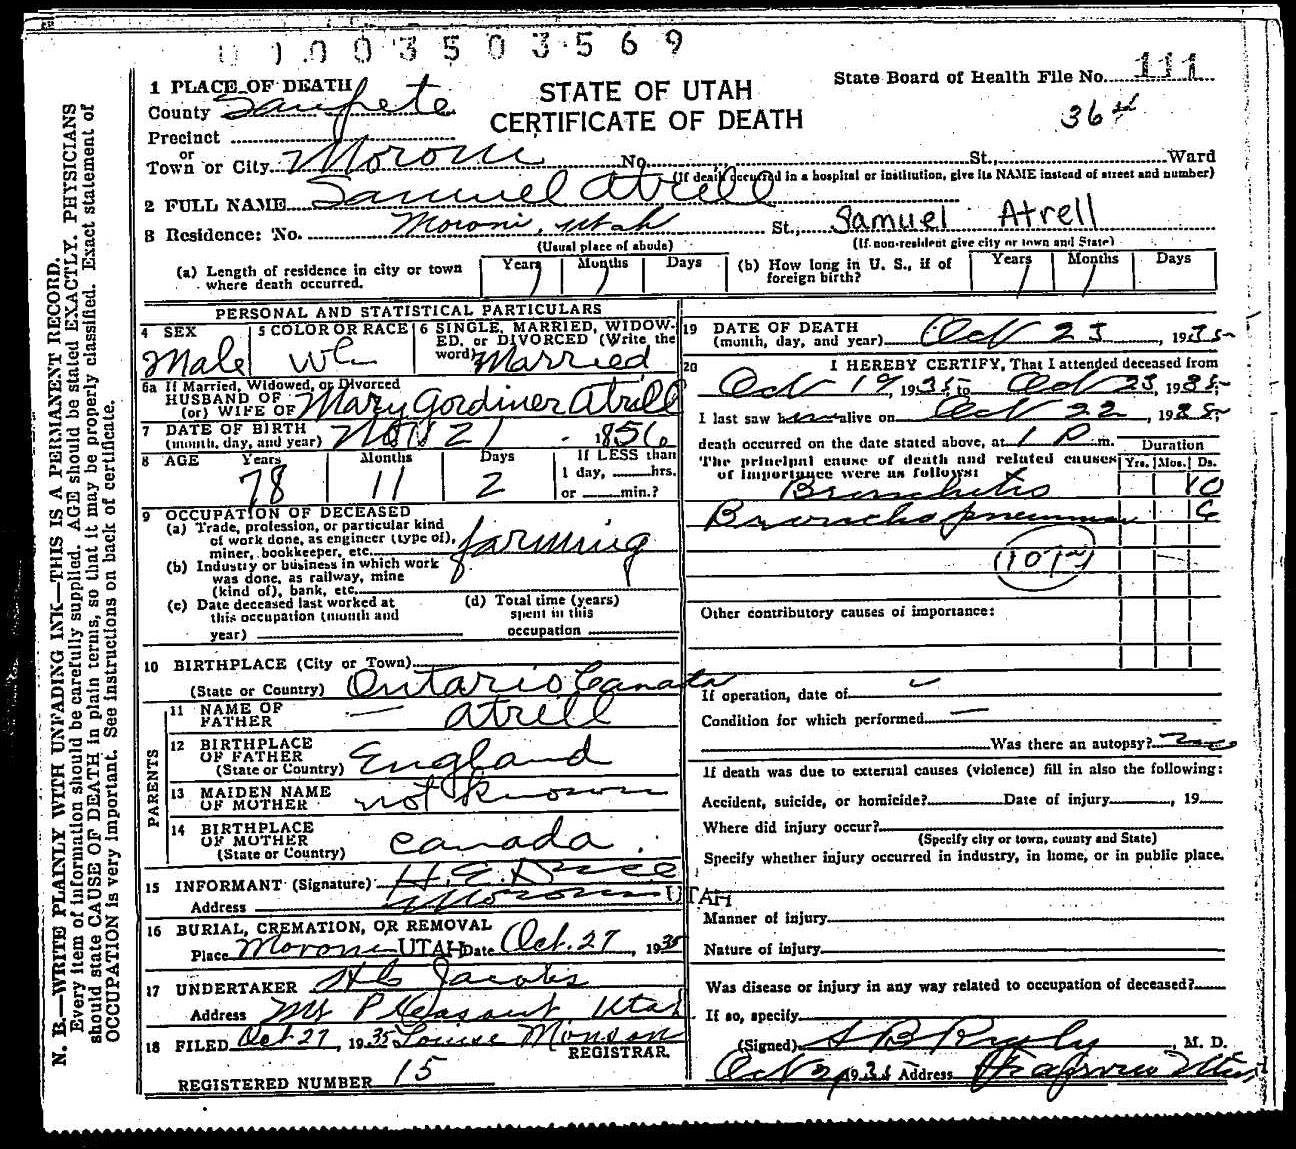 01003503569
State Board of Health File No. 111
36
1 PLACE OF DEATH
STATE OF UTAH
CERTIFICATE OF DEATH
County Sanpete
Precinct
or
Town or City Moroni No. St., Ward
(If death occurred in a hospital or institution, give its NAME instead of street and number)
2 FULL NAME Samuel Atrell
3 Residence: No. Moroni, Utah St., Samuel Atrell
(Usual place of abode) (If non-resident give city or town and State)
(a) Length of residence in city or town where death occurred. Years Months Days (b) How long in U. S., if of foreign birth? Years Months Days
PERSONAL AND STATISTICAL PARTICULARS
4 SEX Male
5 COLOR OR RACE Wh
6 SINGLE, MARRIED, WIDOWED, or DIVORCED (Write the word) Married
6a If Married, Widowed, or Divorced
HUSBAND OF
(or) WIFE OF Mary Gordiner Atrell
7 DATE OF BIRTH
(month, day, and year) Nov 21 1856
8 AGE Years 78 Months 11 Days 2 If LESS than
1 day, hrs.
or min.?
9 OCCUPATION OF DECEASED
(a) Trade, profession, or particular kind
of work done, as engineer (type of),
miner, bookkeeper, etc. farming
(b) Industry or business in which work
was done, as railway, mine
(kind of), bank, etc.
(c) Date deceased last worked at
this occupation (month and
year)
(d) Total time (years)
spent in this
occupation
10 BIRTHPLACE (City or Town)
(State or Country) Ontario Canada
PARENTS
11 NAME OF
FATHER — Atrell
12 BIRTHPLACE
OF FATHER
(State or Country) England
13 MAIDEN NAME
OF MOTHER not known
14 BIRTHPLACE
OF MOTHER
(State or Country) Canada
15 INFORMANT (Signature) H. E.
Address Moroni UTAH
16 BURIAL, CREMATION, OR REMOVAL
Place Moroni UTAH Date Oct. 27, 1935
17 UNDERTAKER Jacobs
Address Mt Pleasant Utah
18 FILED Oct 27, 1935 Louise Monson
REGISTRAR.
REGISTERED NUMBER 15
19 DATE OF DEATH
(month, day, and year) Oct 23, 1935
20 I HEREBY CERTIFY, That I attended deceased from
Oct 19, 1935, to Oct 23, 1935
I last saw him alive on Oct 22, 1935
death occurred on the date stated above, at 1 P m.
Duration
The principal cause of death and related causes
of importance were as follows: Yrs. Mos. Ds.
Bronchitis 10
Broncho pneumonia 6
Other contributory causes of importance:
If operation, date of
Condition for which performed —
Was there an autopsy? no
If death was due to external causes (violence) fill in also the following:
Accident, suicide, or homicide? Date of injury , 19
Where did injury occur?
(Specify city or town, county and State)
Specify whether injury occurred in industry, in home, or in public place.
Manner of injury
Nature of injury
Was disease or injury in any way related to occupation of deceased?
If so, specify
(Signed) , M. D.
Oct 1935 Address Utah
N. B.—WRITE PLAINLY WITH UNFADING INK—THIS IS A PERMANENT RECORD.
Every item of information should be carefully supplied. AGE should be stated EXACTLY. PHYSICIANS
should state CAUSE OF DEATH in plain terms, so that it may be properly classified. Exact statement of
OCCUPATION is very important. See instructions on back of certificate.